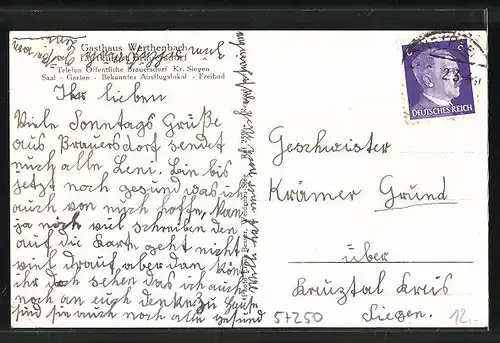 Gasthaus Werthenbach
Luftkurort Brauersdorf
Telefon Öffentliche Brauersdorf Kr. Siegen
Saal - Garten - Bekanntes Ausflugslokal - Freibad
Ihr lieben
Viele Sonntags Grüße
aus Brauersdorf sendet
euch alle Leni. Bin bis
jetzt noch gesund was ich
auch von euch hoffe, kan
ja noch viel schreiben den
auf die Karte geht nicht
viel drauf aber dan könt
ihr doch sehen das ich auch
noch an euch denke, zu Hause
sind sie auch noch alle gesund
DEUTSCHES REICH
Geschwister
Krämer Grund
über
Kreuztal Kreis
Siegen.
57250
12,-